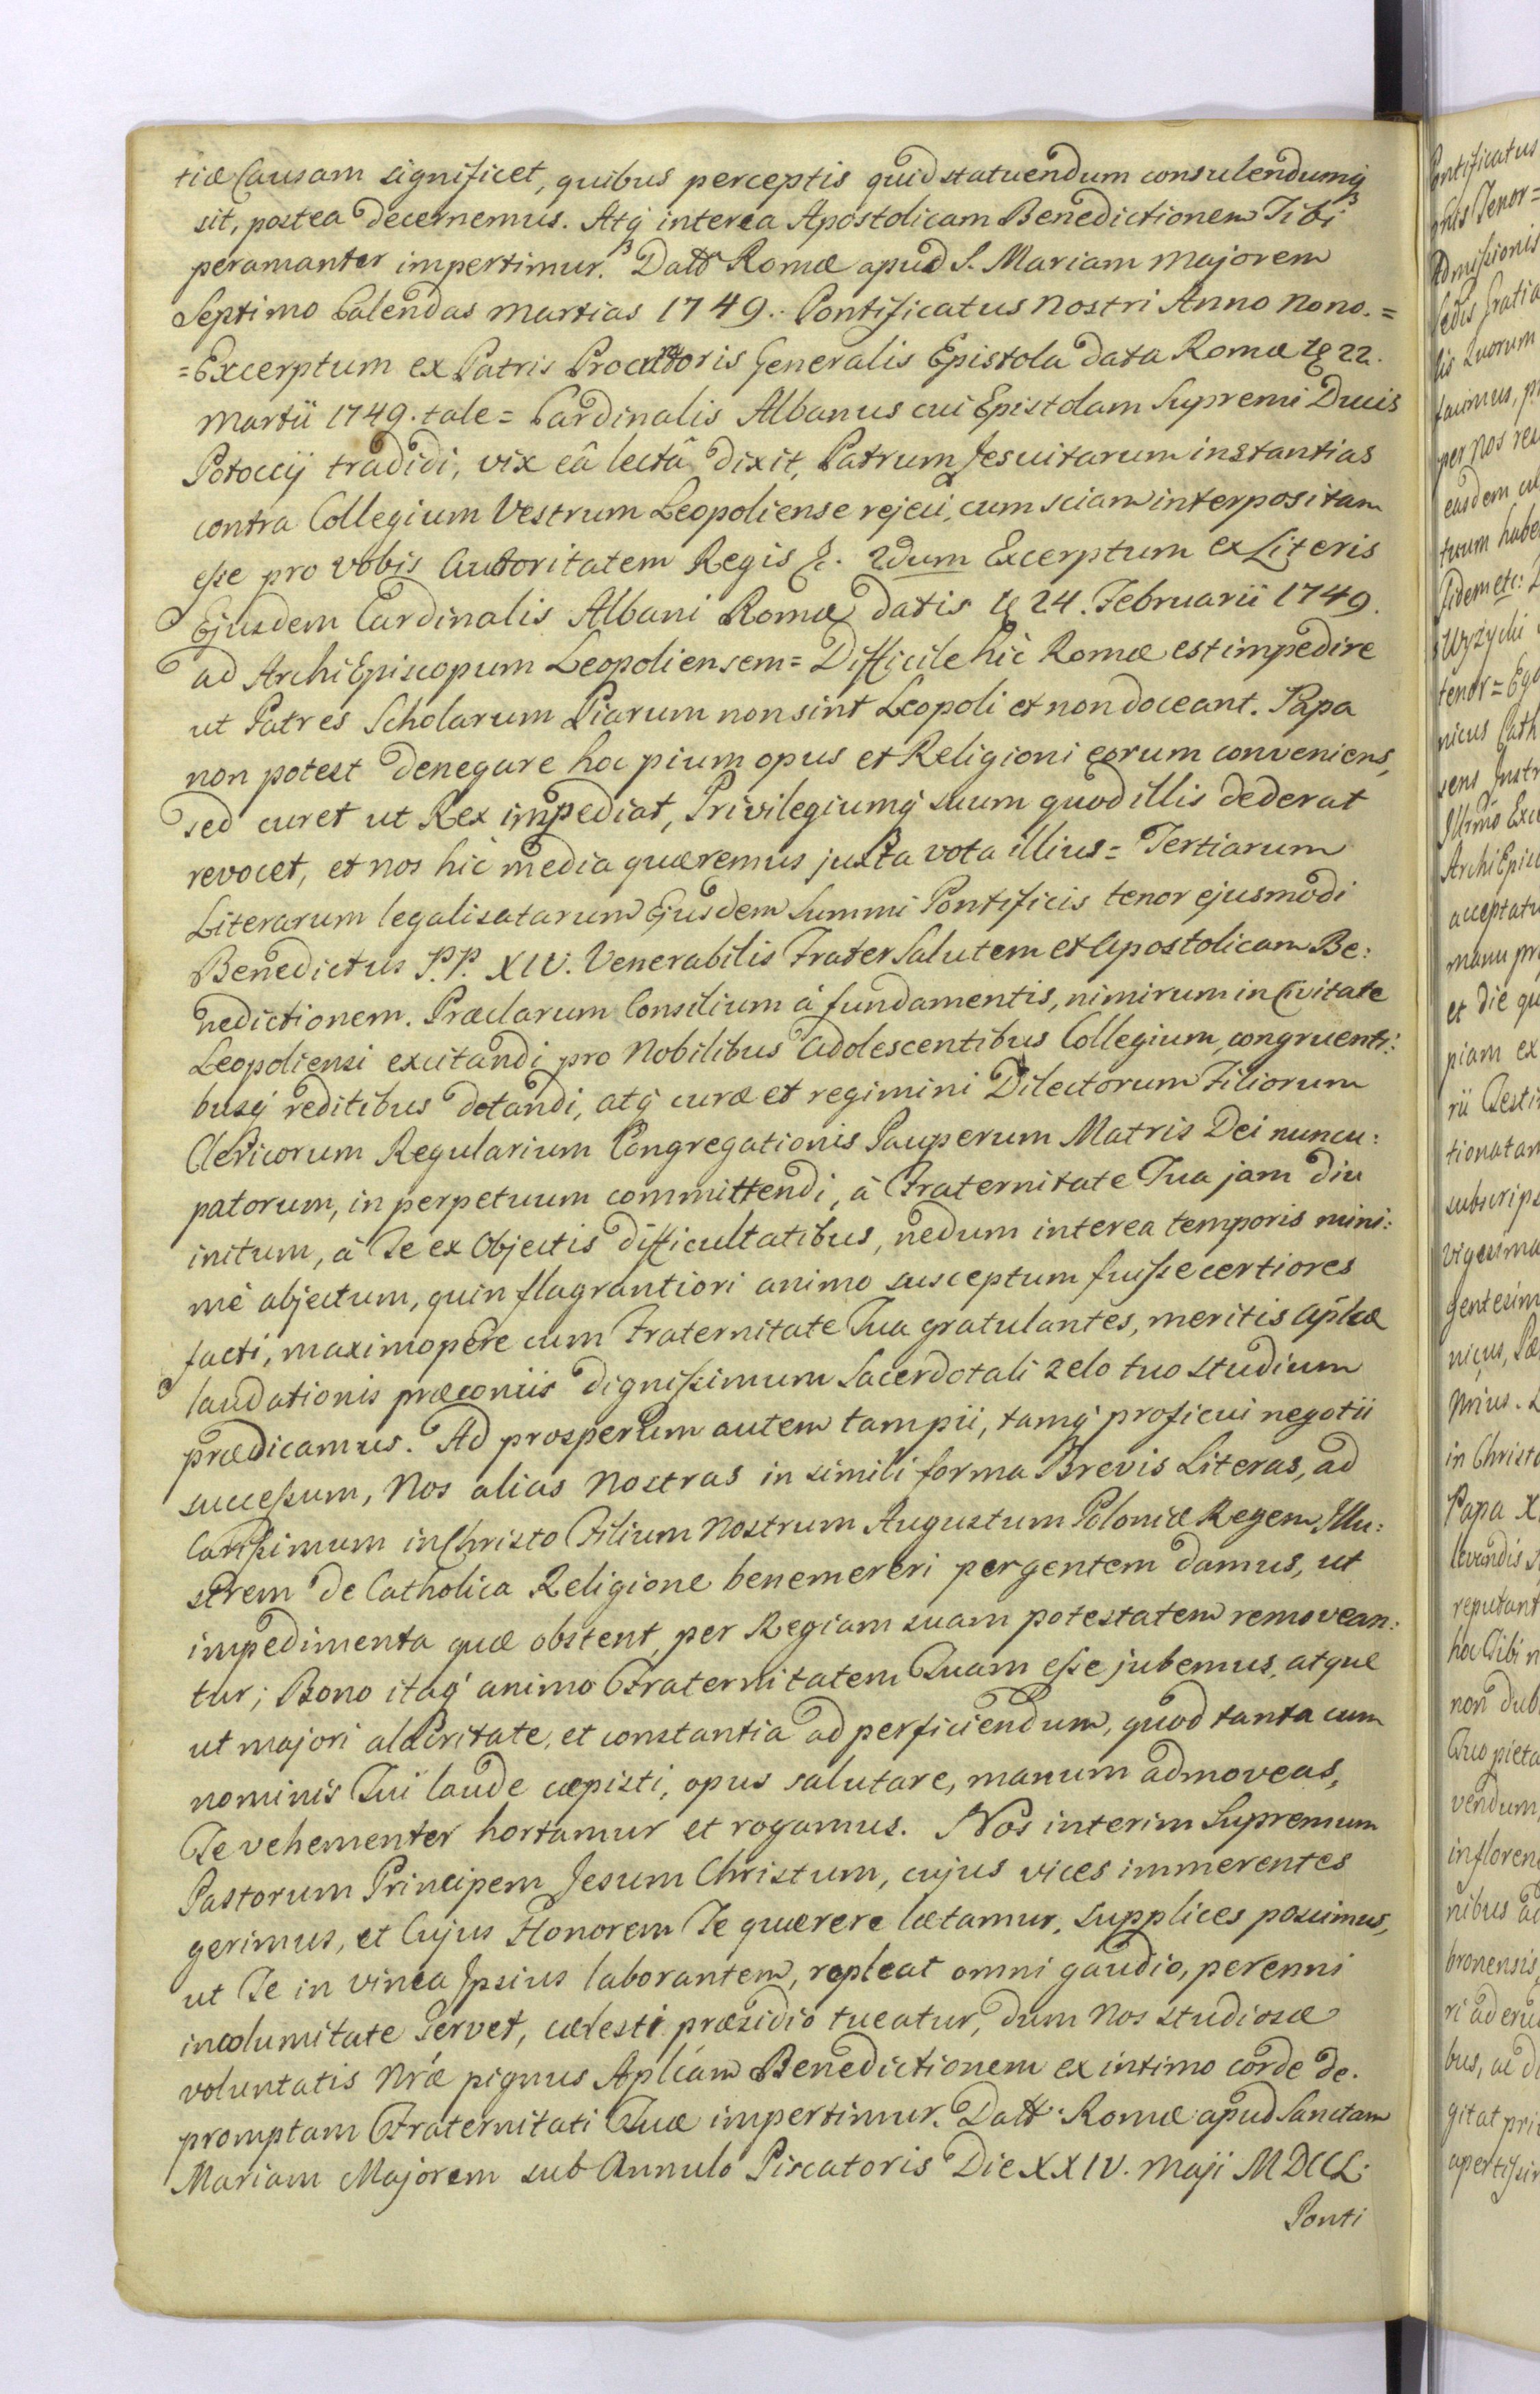 tiæ Causam significet, quibus perceptis quid statuendum consulendumq́
sit, postea decernemus. Atq́ interea Apostolicam Benedictionem Tibi
peramanter impertimur. Datt Romæ apud S. Mariam Majorem
Septimo Calendas Martias 1749. Pontificatus Nostri Anno Nono. =
= Excerptum ex Patris Procuratoris Generalis Epistola data Romæ 22.
Martii 1749. tale = Cardinalis Albanus cui Epistolam Supremi Ducis
Potoccij tradidi, vix eâ lectâ dixit, Patrum Jesuitarum instantias
contra Collegium Vestrum Leopoliense rejeci, cum sciam interpositam
esse pro vobis Autoritatem Regis &. 2dum Excerptum ex Literis
Ejusdem Cardinalis Albani Romæ datis 24. Februarii 1749.
ad ArchiEpiscopum Leopoliensem = Difficile hic Romæ est impedire
ut Patres Scholarum Piarum non sint Leopoli et non doceant. Papa
non potest denegare hoc pium opus et Religioni eorum conveniens,
sed curet ut Rex impediat, Privilegiumq́ suum quod illis dederat
revocet, et nos hic media quæremus juxta vota illius = Tertiarum
Literarum legalisatarum Ejusdem Summi Pontificis tenor ejusmodi
Benedictus P.P. XIV. Venerabilis Frater Salutem et Apostolicam Be:
nedictionem. Præclarum Consilium à fundamentis, nimirum in Civitate
Leopoliensi excitandi pro Nobilibus Adolescentibus Collegium, congruenti:
busq́ reditibus dotandi, atq́ curæ et regimini Dilectorum Filiorum
Clericorum Regularium Congregationis Pauperum Matris Dei nuncu:
patorum, in perpetuum committendi, à Fraternitate Tua jam diu
initum, à Te ex Objectis difficultatibus, nedum interea temporis mini:
mè abjectum, quin flagrantiori animo susceptum fuisse certiores
facti, maximopere cum Fraternitate Tua gratulantes, meritis Aplicæ
laudationis præconiis dignissimum Sacerdotali zelo tuo studium
prædicamus. Ad prosperum autem tam pii, tamq́ proficui negotii
successum, Nos alias Nostras in simili forma Brevis Literas, ad
Carissimum in Christo Filium Nostrum Augustum Poloniæ Regem Illu:
strem de Catholica Religione benemereri pergentem damus, ut
impedimenta quæ obstent, per Regiam suam potestatem removean:
tur; Bono itaq́ animo Fraternitatem Tuam esse jubemus, atque
ut majori alacritate, et constantia ad perficiendum, quod tanta cum
nominis Tui laude cæpisti, opus salutare, manum admoveas,
Te vehementer hortamur et rogamus. Nos interim Supremum
Pastorum Principem Jesum Christum, cujus vices immerentes
gerimus, et Cujus Honorem Te quærere lætamur, supplices poscimus,
ut Te in vinea Ipsius laborantem, repleat omni gaudio, perenni
incolumitate servet, cælesti præsidio tueatur, dum Nos studiosæ
voluntatis Nræ pignus Aplicam Benedictionem ex intimo corde de.
promptam Fraternitati Tuæ impertimur. Datt Romæ apud Sanctam
Mariam Majorem sub Annulo Piscatoris Die XXIV. Maji MDCCL.
Ponti